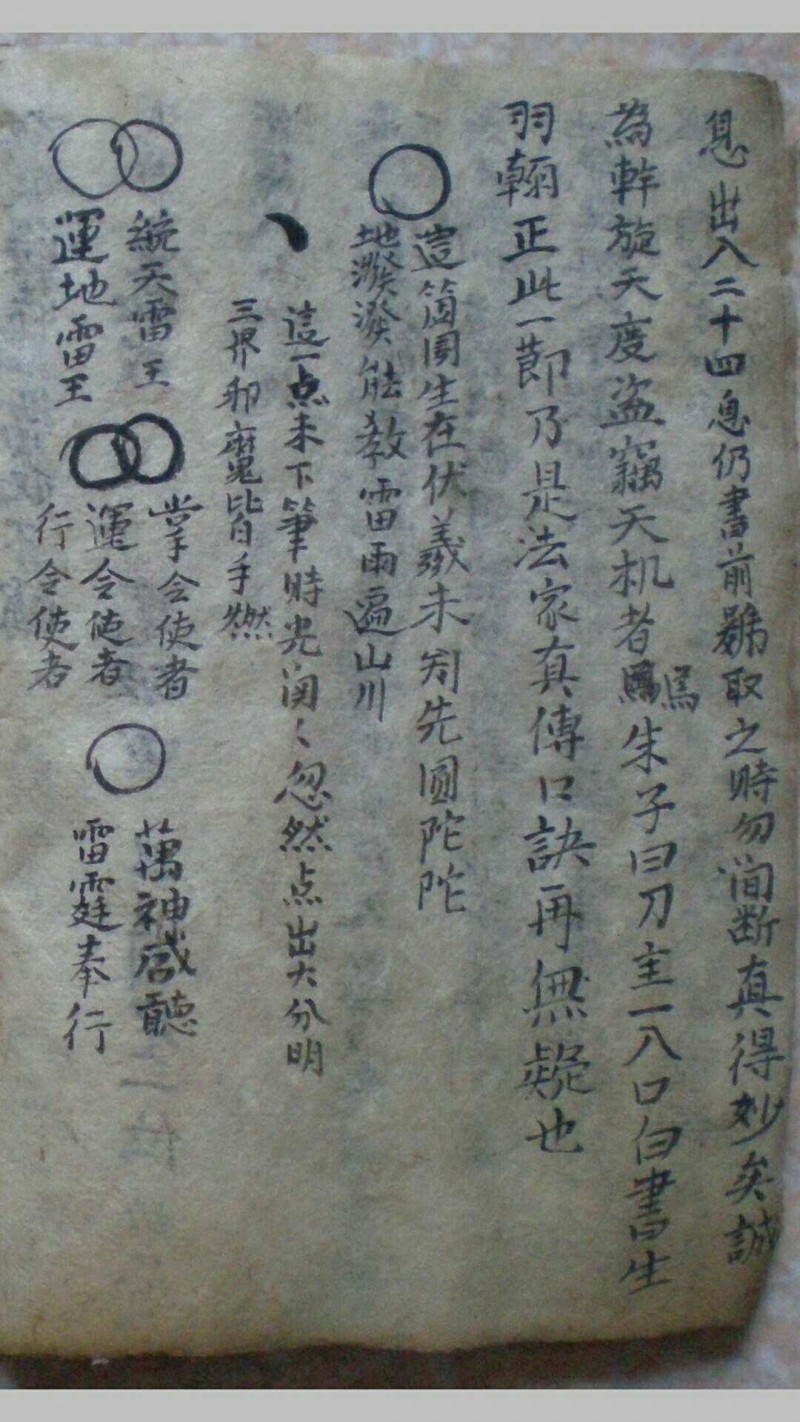 息出入二十四息仍書前鷊取之時勿间断真得妙矣誠
為斡旋天度盗竊天机者焉朱子曰刀圭一入口白書生
羽翰正此一節乃是法家真傳口訣再無疑也
這箇圓生在伏羲未刟先圓陀陀
地潑潑能教雷雨遍山川
這一点未下筆時光闰〻忽然点出大分明
三界邪魔皆手燃
統天雷王
運地雷王
掌令使者
運令使者
行令使者
萬神咸聽
雷霆奉行